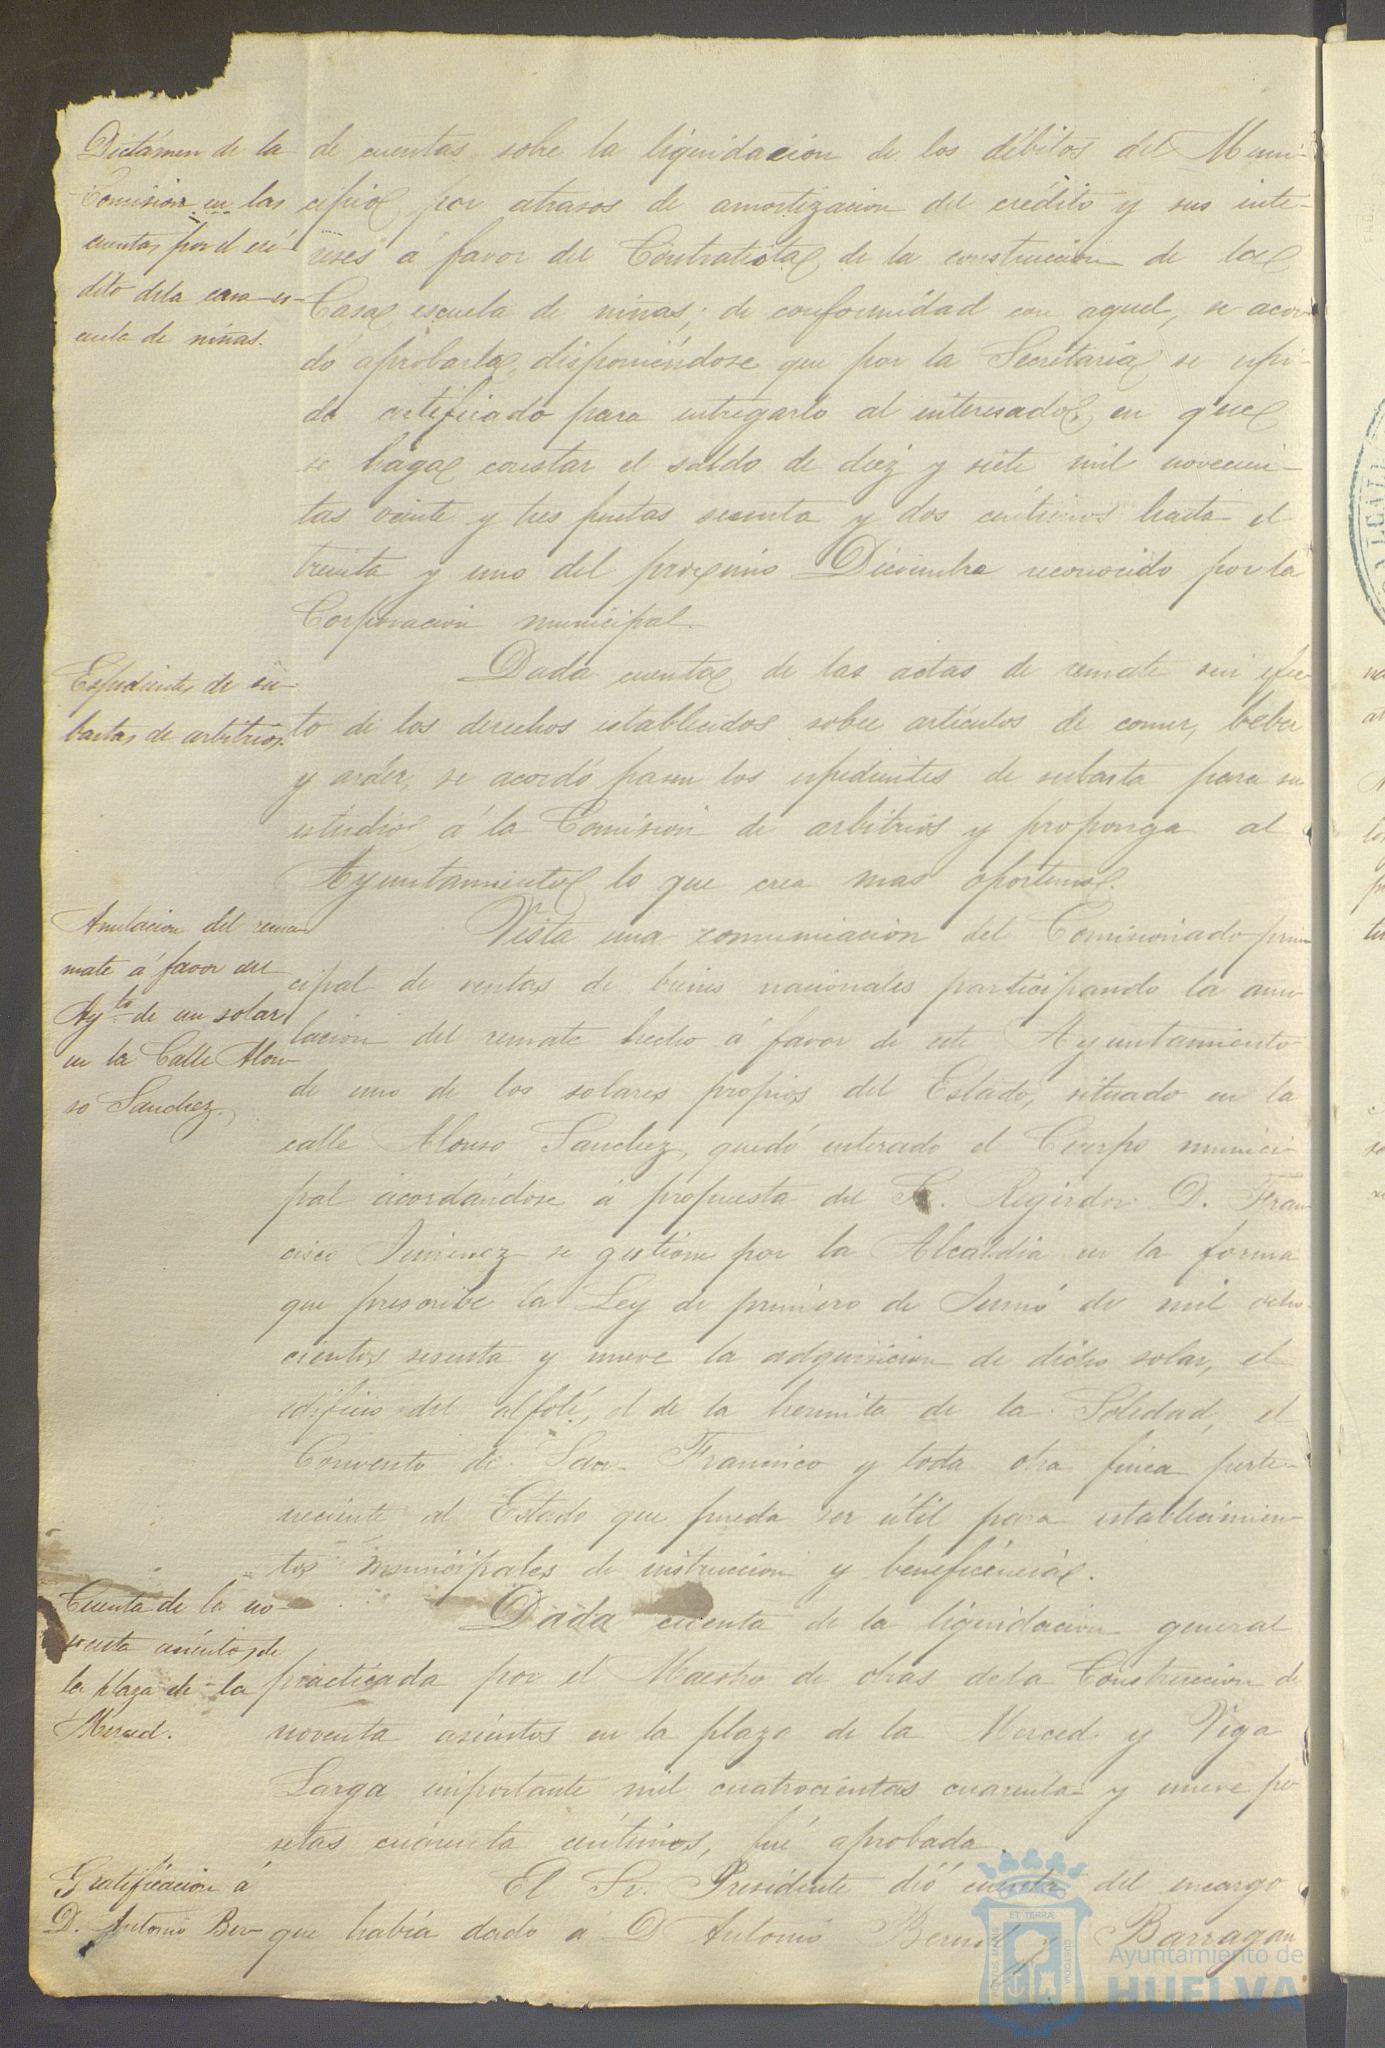 Dictámen de la
Comision en las
cuentas por el cré-
dito de la casa es-
cuela de niñas.
de cuentas sobre la liquidacion de los débitos del Muni-
cipio por atrasos de amortizacion del crédito y sus inte-
reses á favor del Contratista de la construccion de la
Casa escuela de niñas; de conformidad con aquel, se acor-
dó aprobarla, disponiéndose que por la Secretaria se espi-
da certificado para entregarlo al interesado, en que
se haga constar el saldo de diez y siete mil novecien-
tas veinte y tres pesetas sesenta y dos centimos hasta el
treinta y uno del proximo Diciembre reconocido por la
Corporacion municipal.
Espedientes de su-
bastas de arbitrios.
Dada cuenta de las actas de remate sin efec-
to de los derechos establecidos sobre artículos de comer, beber
y arder, se acordó pasen los espedientes de subasta para su
estudio á la Comision de arbitrios y proponga al
Ayuntamiento lo que crea mas oportuno.
Anulacion del rema-
mate á favor del
Ayto. de un solar
en la Calle Alon-
so Sanchez.
Vista una comunicacion del Comisionado prin-
cipal de ventas de bienes nacionales participando la anu-
lacion del remate hecho á favor de este Ayuntamiento
de uno de los solares propios del Estado, situado en la
calle Alonso Sanchez, quedó enterado el Cuerpo munici-
pal acordándose á propuesta del Sr. Regidor D. Fran-
cisco Jimenez se gestione por la Alcaldia en la forma
que prescribe la Ley de primero de Junio de mil ocho-
cientos sesenta y nueve la adquisicion de dicho solar, el
edificio del alfolí, el de la hermita de la Soledad, el
Convento de San Francisco y toda otra finca perte-
neciente al Estado que pueda ser útil para establecimien-
tos municipales de instruccion y beneficencia.
Cuenta de la no-
venta asientos de
la plaza de la
Merced.
Dada cuenta de la liquidacion general
practicada por el Maestro de obras de la Construccion de
noventa asientos en la plaza de la Merced y Vega
Larga importante mil cuatrocientas cuarenta y nueve pe-
setas cuarenta centimos, fué aprobada.
Gratificacion á
D. Antonio Ber-
El Sr. Presidente dió cuenta del encargo
que habia dado a D Antonio y Barragan
Ayuntamiento de
HUELVA